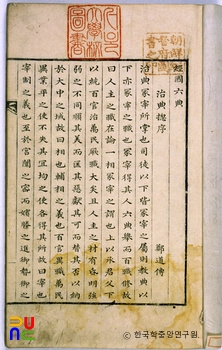 經國六典
治典摠序
鄭道傳
治典冢宰所掌也司徒以下皆冢宰之屬則教典以
下亦冢宰之職也冢宰得其人六典擧而百職修故
曰人主之職在論一相冢宰之謂也上以承君父下
以統百官治萬民厥職大矣且人主之材有昏明強
弱之不同順其美而匡其惡獻其可而替其否以納
於大中之域故曰相也輔相之義也百官異職萬民
異業平之使不失其宜均之使各得其所故曰宰也
宰制之義也至於宮闈之密而嬪媵之進御僕御之
© 한국학중앙연구원